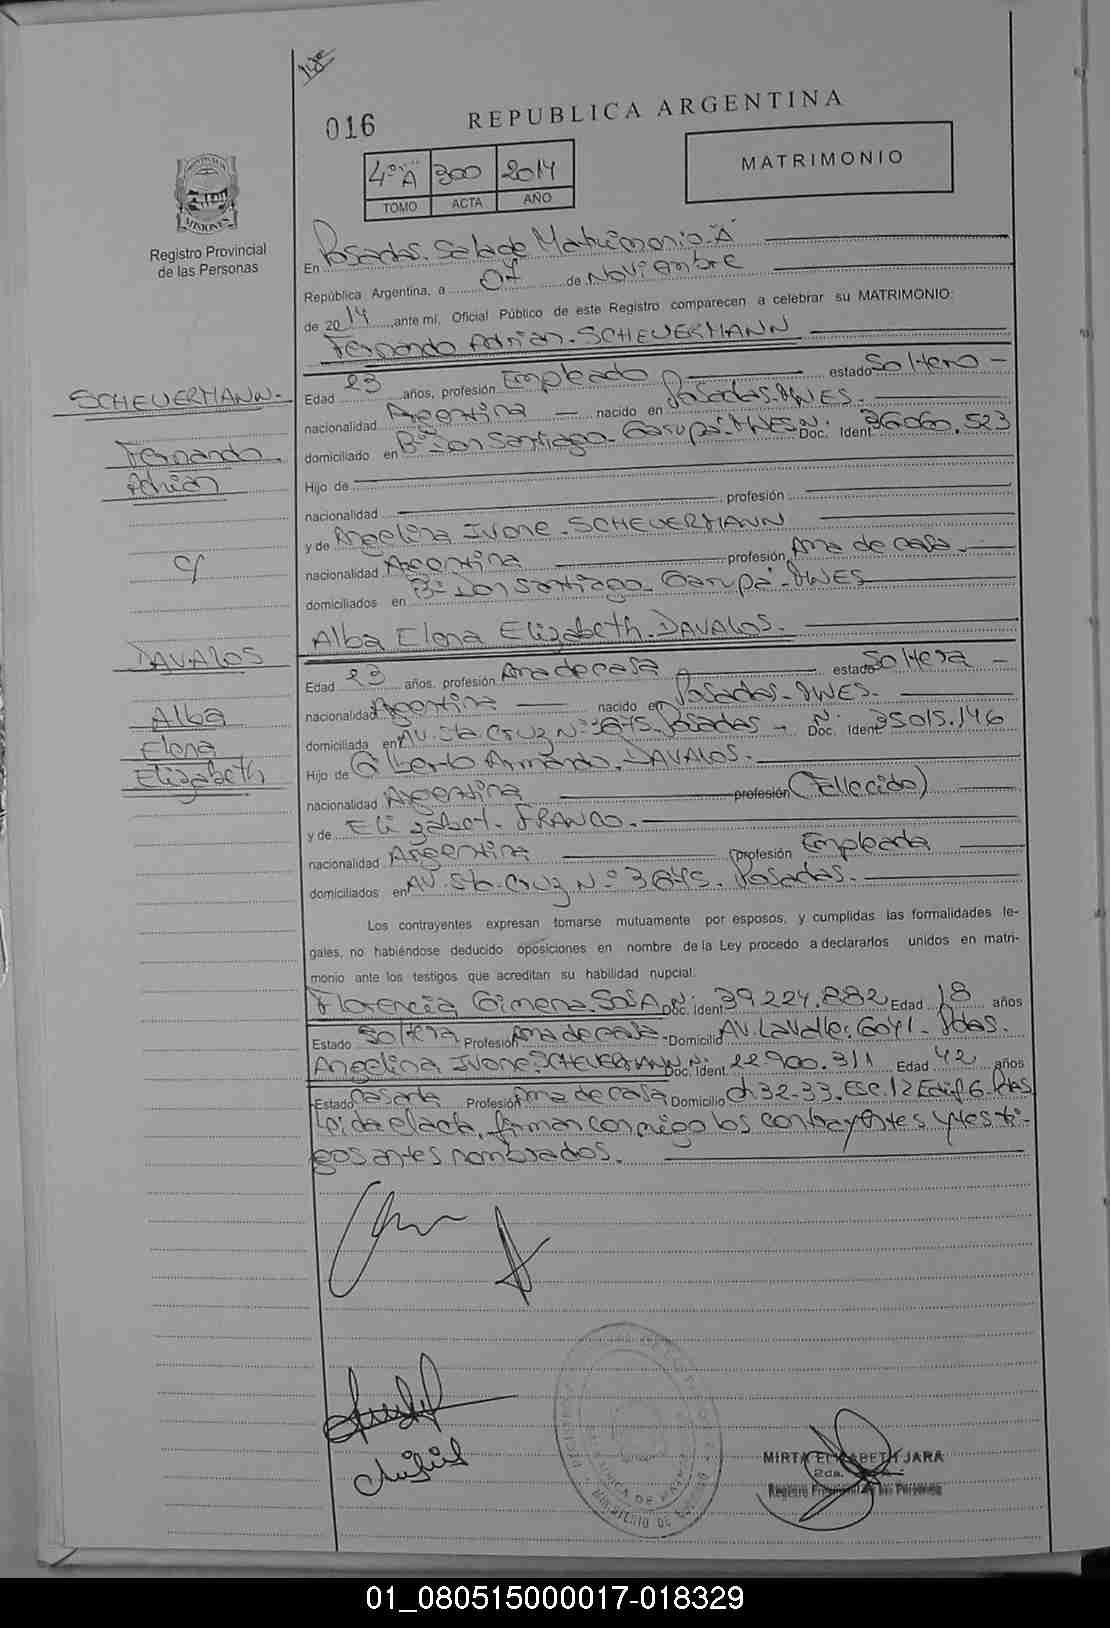 016
REPUBLICA ARGENTINA
4º A 300 2014
TOMO ACTA AÑO
MATRIMONIO
MISIONES
Registro Provincial
de las Personas
En Posadas. Sala de Matrimonio. A
República Argentina, a 07 de Noviembre
de 2014, ante mi, Oficial Público de este Registro comparecen a celebrar su MATRIMONIO:
Fernando Adrián. SCHEUERMANN
SCHEUERMANN.
Fernando.
Adrián
c/
DAVALOS
Alba
Elena
Elizabeth
Edad 23 años, profesión Empleado estado Soltero
nacionalidad Argentina nacido en Posadas. MNES.
domiciliado en Bº Don Santiago. Garupá. MNES. Doc. Ident. 36.060.523
Hijo de
nacionalidad profesión
y de Angelina Ivone. SCHEUERMANN
nacionalidad Argentina profesión Ama de casa.
domiciliados en Bº Don Santiago. Garupá. MNES
Alba Elena Elizabeth. DAVALOS.
Edad 23 años, profesión Ama de casa estado Soltera
nacionalidad Argentina nacido en Posadas. MNES.
domiciliada en AV. Sta Cruz Nº 3645. Posadas - Doc. Ident. 35.015.146
Hijo de Gilberto Armando. DAVALOS.
nacionalidad Argentina profesión (Fallecido)
y de Elizabet. FRANCO.
nacionalidad Argentina profesión Empleada
domiciliados en AV. Sta. Cruz Nº 3645. Posadas.
Los contrayentes expresan tomarse mutuamente por esposos, y cumplidas las formalidades le-
gales, no habiéndose deducido oposiciones en nombre de la Ley procedo a declararlos unidos en matri-
monio ante los testigos que acreditan su habilidad nupcial:
Florencia Gimena. SOSA Doc. ident. 39.224.882 Edad 18 años
Estado Soltera Profesión Ama de casa Domicilio AV. Lavalle. 6041. Pdas.
Angelina Ivone. SCHEUERMANN Doc. ident. 22.900.311 Edad 42 años
Estado Casada Profesión Ama de casa Domicilio Ch. 32-33. Esc. 12 Edif 6. Pdas
Leída el acta, firman conmigo los contrayentes y testi-
gos antes nombrados.
MIRTA ELIZABETH JARA
Registro Provincial de las Personas
01_080515000017-018329